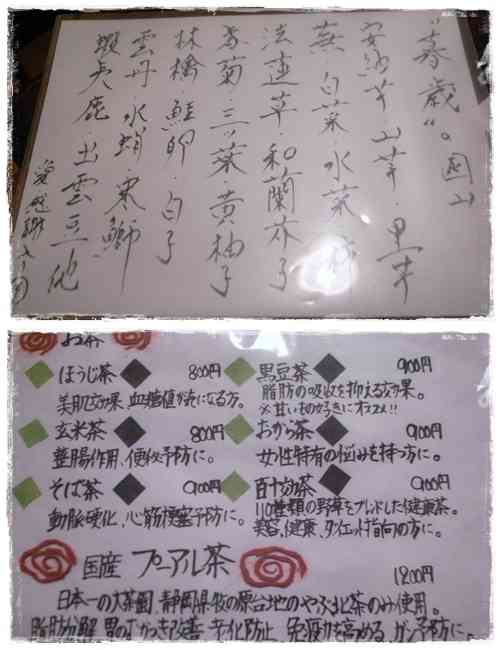 安納芋・山芋・里芋
蕪・白菜・水菜・
法蓮草・和蘭芥子
春菊・三ッ葉・黄柚子
林檎・鮭卵・白子
雲丹・水蛸・寒鰤
蝦夷鹿・出雲豆他
お茶
ほうじ茶 800円
美肌効果、血糖値が気になる方。
玄米茶 800円
整腸作用、便秘予防に。
そば茶 900円
動脈硬化、心筋梗塞予防に。
黒豆茶 900円
脂肪の吸収を抑える効果。
※甘いもの好きにオススメ!!
おから茶 900円
女性特有の悩みを持つ方に。
百十効茶 900円
110種類の野草をブレンドした健康茶。
美容、健康、ダイエット指向の方に。
国産 プーアル茶 1200円
日本一の大茶園、静岡県牧の原台地のやぶ北茶のみ使用。
脂肪分解、胃のむかつき改善、老化防止、免疫力を高める、ガン予防に。